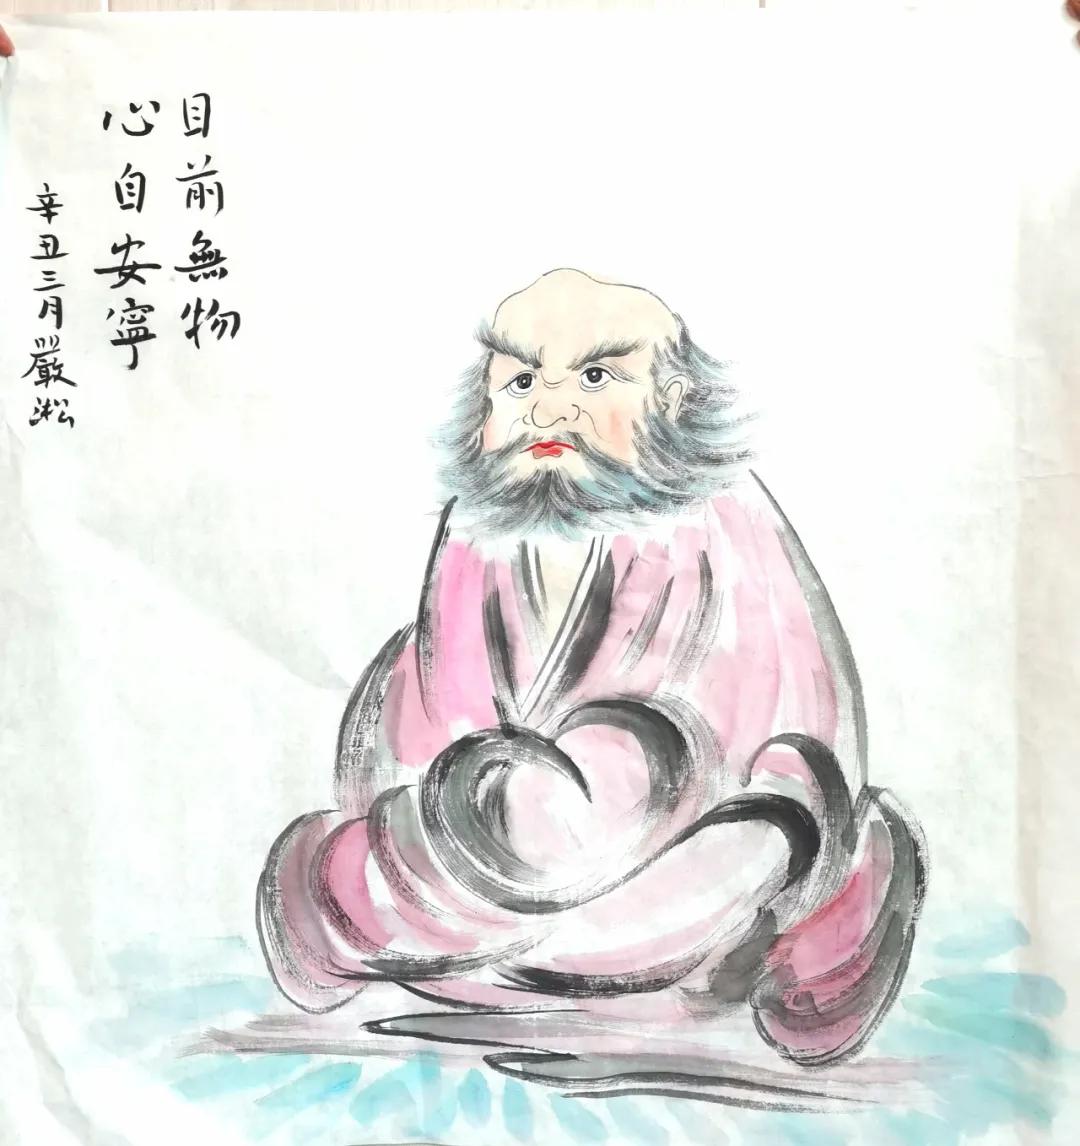 目前無物
心自安寧
辛丑三月嚴淞